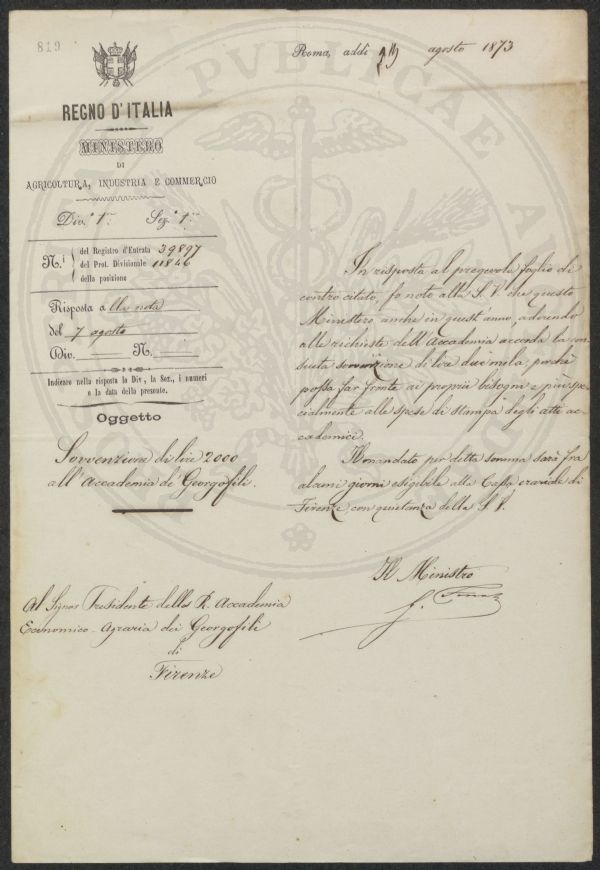 819
Roma, addì 29 agosto 1873
REGNO D'ITALIA
MINISTERO
DI
AGRICOLTURA, INDUSTRIA E COMMERCIO
Div.e 1.a Sez.e 1.a
N.i
del Registro d'Entrata 39897
del Prot. Divisionale 11846
della posizione
Risposta alla nota
del 7 agosto
Div. N.
Indicare nella risposta la Div., la Sez., i numeri
e la data della presente.
Oggetto
Sovvenzione di lire 2000
all'Accademia de' Georgofili.
In risposta al pregevole foglio di
contro citato, fo noto alla S. V. che questo
Ministero anche in quest'anno, aderendo
alle richieste dell'Accademia accorda la con-
sueta sovvenzione di lire duemila, perchè
possa far fronte ai proprii bisogni e più spe-
cialmente alle spese di stampa degli atti ac-
cademici.
Il mandato per detta somma sarà fra
alcuni giorni esigibile alla Cassa erariale di
Firenze, con quietanza della S. V.
Il Ministro
Al Signor Presidente della R. Accademia
Economico-Agraria dei Georgofili
di
Firenze
PVBLICAE